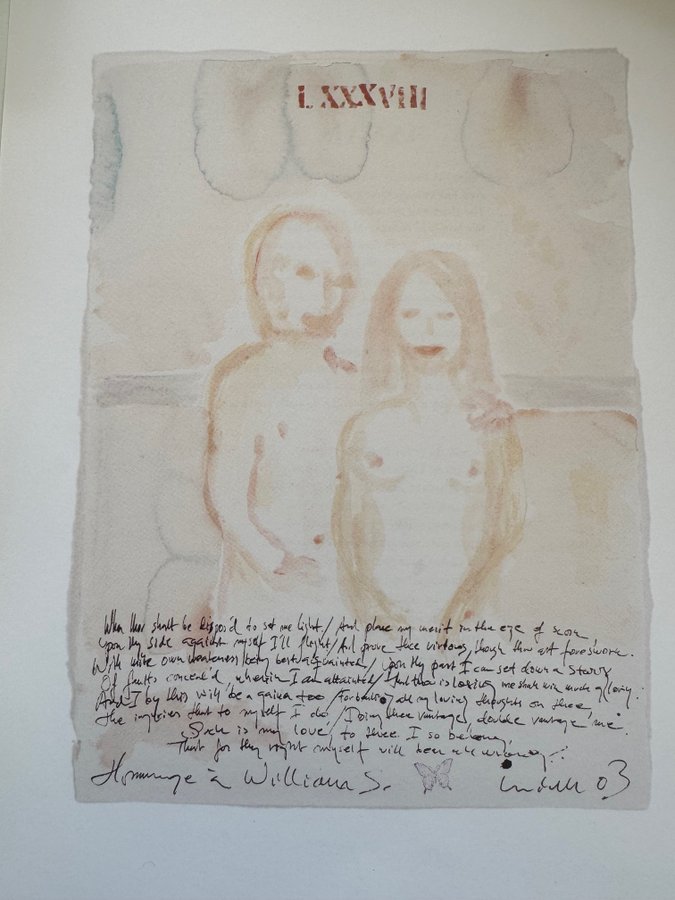 LXXXVIII
When thou shalt be dispos'd to set me light / And place my merit in the eye of scorn
Upon thy side against myself I'll fight / And prove thee virtuous, though thou art forsworn.
With mine own weakness being best acquainted / Upon thy part I can set down a story
Of faults conceal'd, wherein I am attainted / That thou in losing me shalt win much glory:
And I by this will be a gainer too / For bending all my loving thoughts on thee
the injuries that to myself I do / Doing thee vantage, double vantage me.
Such is my love, to thee I so belong,
That for thy right myself will bear all wrong.
Hommage à William S. 03